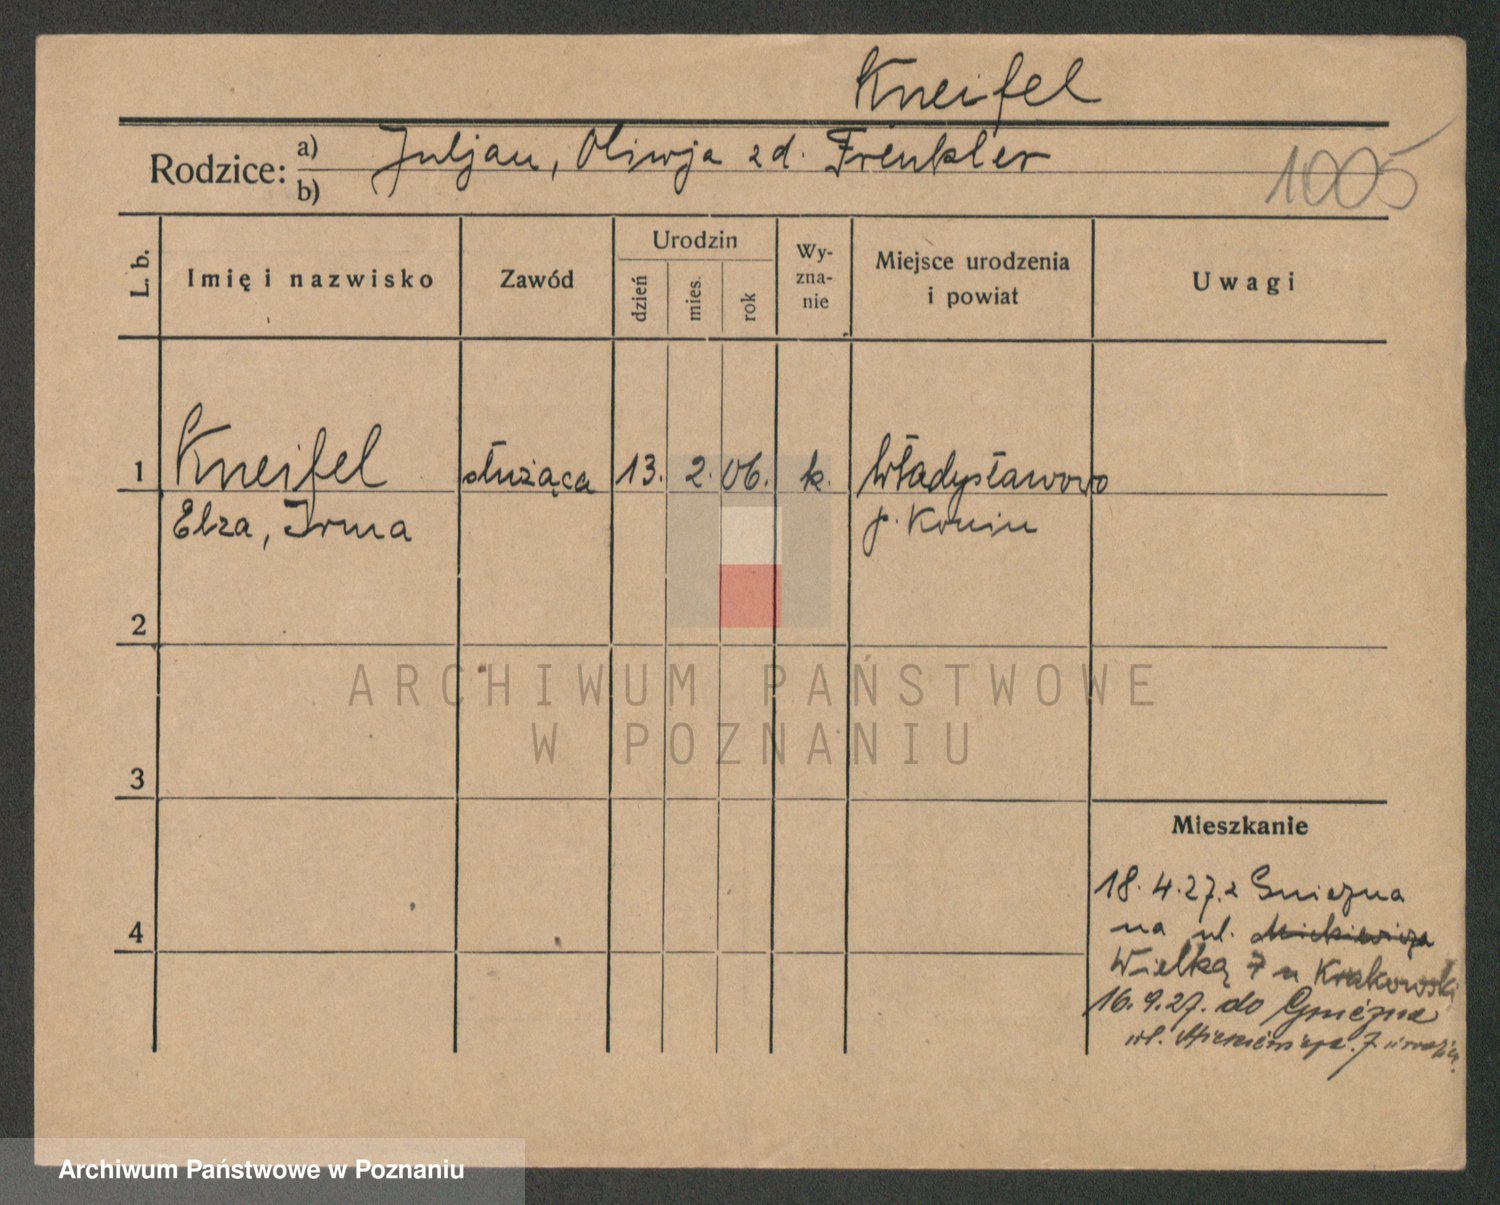 Kneifel
Rodzice: a) Juljan, Oliwja zd. Frenkler
b)
1005
L. b.
Imię i nazwisko
Zawód
Urodzin
dzień
mies.
rok
Wy-
zna-
nie
Miejsce urodzenia
i powiat
Uwagi
1 Kneifel służąca 13. 2. 06. k. Władysławowo
Elza, Irma p. Konin
2
3
4
ARCHIWUM PAŃSTWOWE
W POZNANIU
Mieszkanie
18.4.27. z Gniezna
na ul. Mickiewicza
Wielką 7 u Krakowski
16.9.27. do Gniezna
ul.
Archiwum Państwowe w Poznaniu